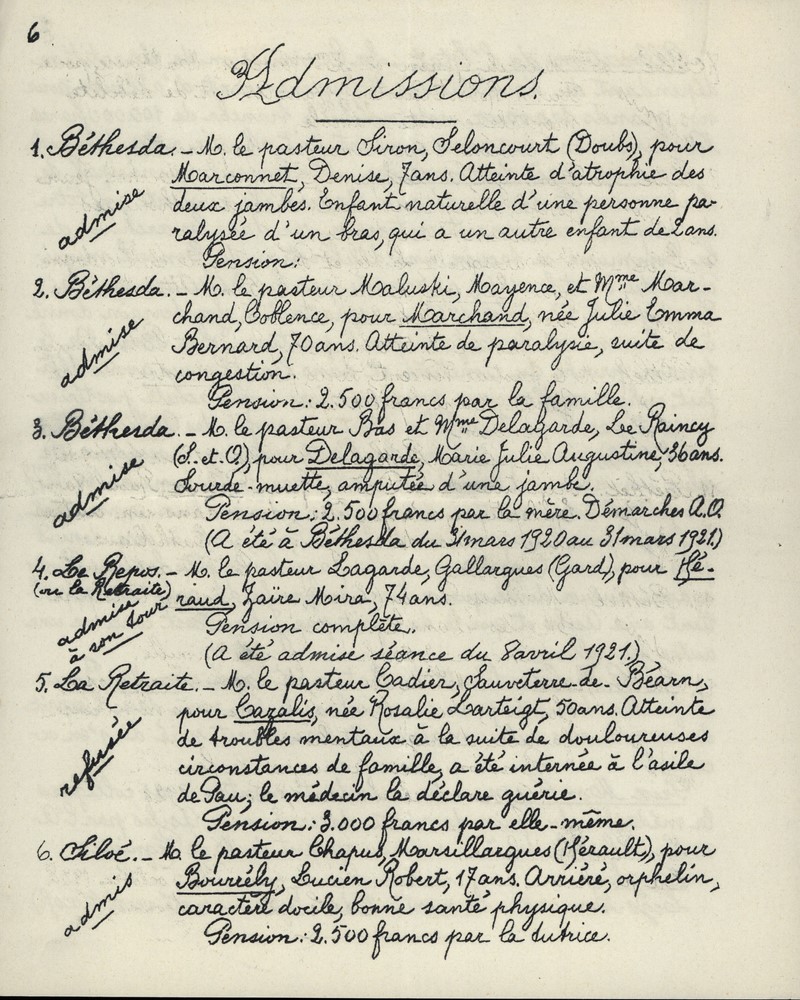 6
Admissions.
1. Béthesda. - M. le pasteur Siron, Seloncourt (Doubs), pour
Marconnet, Denise, 7 ans. Atteinte d'atrophie des
admise
deux jambes. Enfant naturelle d'une personne pa-
ralysée d'un bras, qui a un autre enfant de 2 ans.
Pension:
2. Béthesda. - M. le pasteur Maluski, Mayence, et Mme Mar-
chand, Coblence, pour Marchand, née Julie Emma
admise
Bernard, 70 ans. Atteinte de paralysie, suite de
congestion.
Pension: 2.500 francs par la famille.
3. Béthesda. - M. le pasteur Bas et Mme Delagarde, Le Raincy
(S.et.O), pour Delagarde, Marie Julie Augustine, 36 ans.
admise
Sourde-muette, amputée d'une jambe.
Pension: 2.500 francs par la mère. Démarches A.O.
(A été à Béthesda du 31 mars 1920 au 31 mars 1921.)
4. Le Repos. - M. le pasteur Lagarde, Gallargues (Gard), pour Hé-
(ou la Retraite)
raud, Zaïre Mira, 74 ans.
admise
à son tour
Pension complète.
(A été admise séance du 8 avril 1921.)
5. La Retraite. - M. le pasteur Cadier, Sauveterre-de-Béarn,
pour Cazalis, née Rosalie Larteigt, 50 ans. Atteinte
refusée
de troubles mentaux à la suite de douloureuses
circonstances de famille, a été internée à l'asile
de Pau; le médecin la déclare guérie.
Pension: 3.000 francs par elle-même.
6. Siloé. - M. le pasteur Chapus, Marsillargues (Hérault), pour
Bourrély, Lucien Robert, 17 ans. Arriéré, orphelin,
admis
caractère docile, bonne santé physique.
Pension: 2.500 francs par la tutrice.